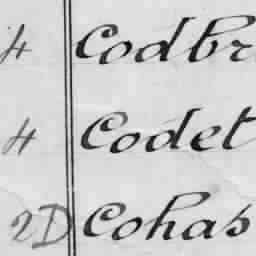 4 Codbr
4 Codet
2D Cohas